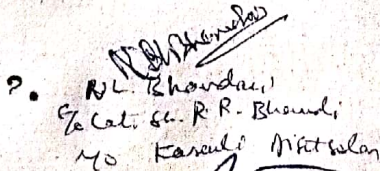 ?. N.L. Bhandari
c/o Lat. Sh. R. R. Bhandi
r/o Kasauli Distt Solan